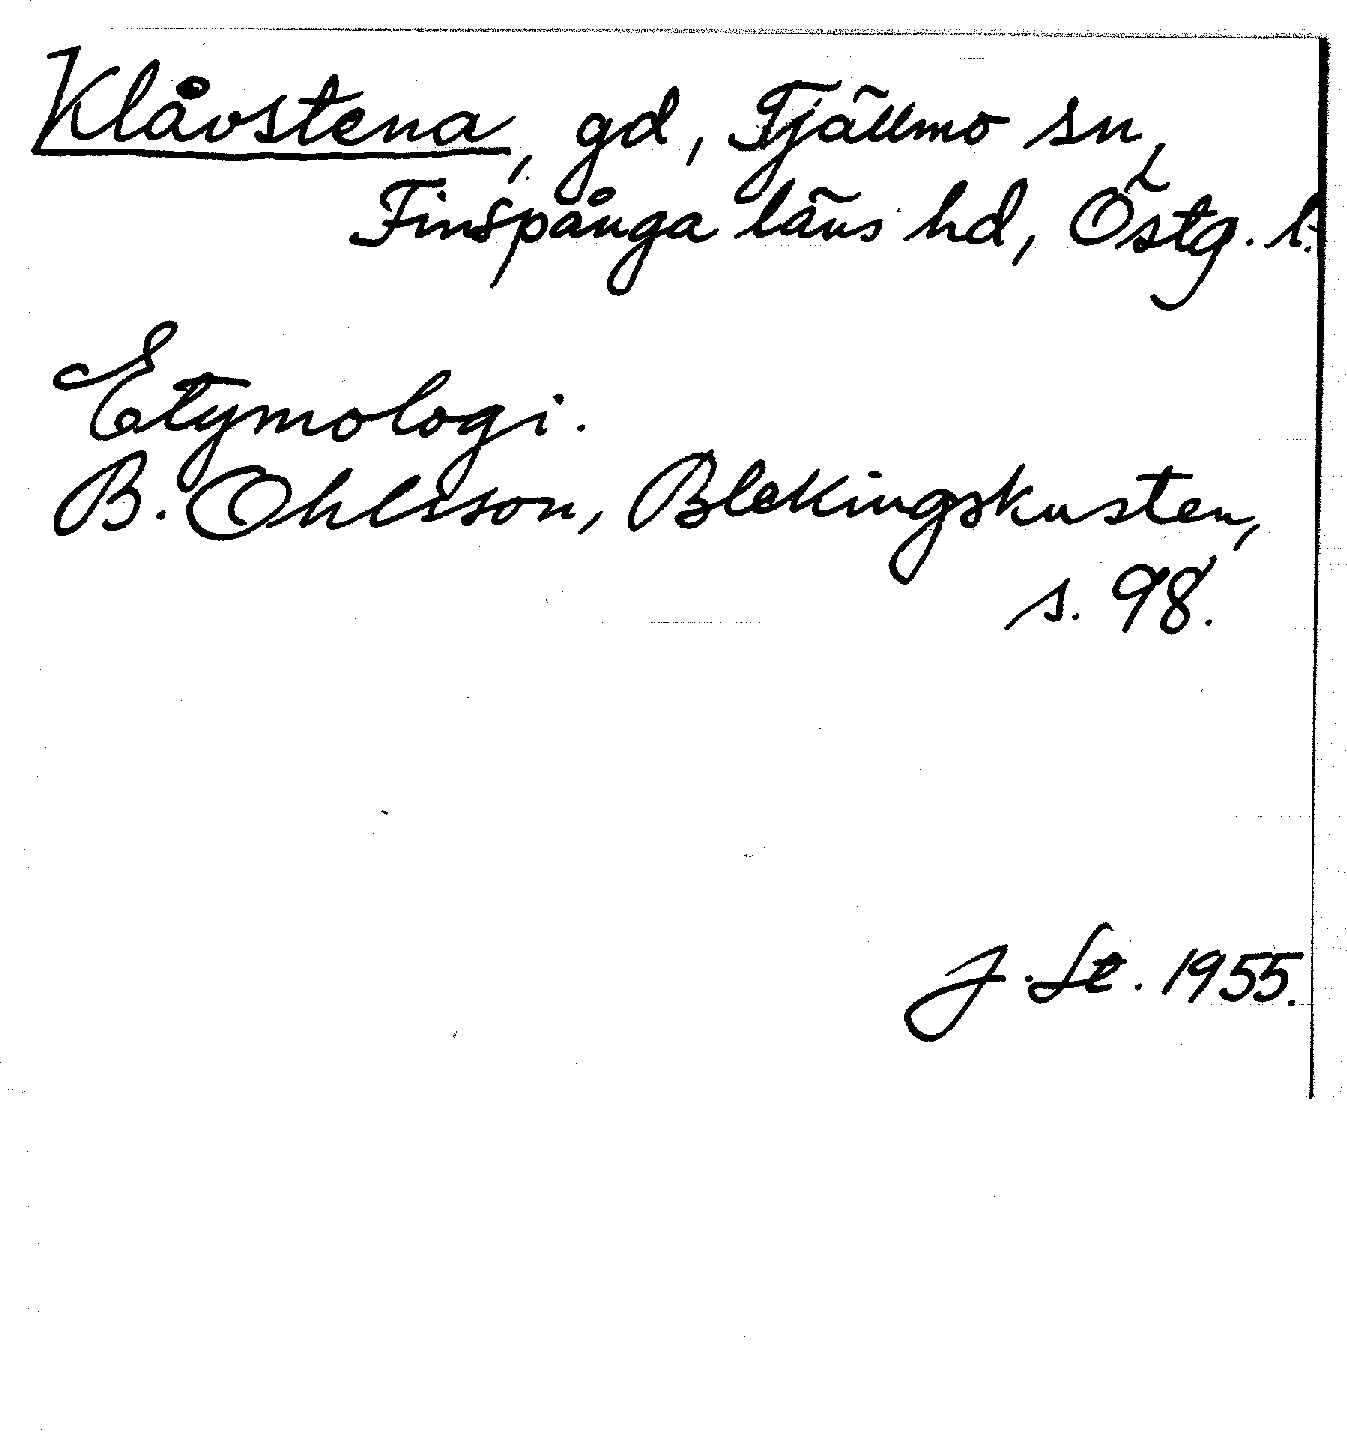 Klåvstena, gd, Tjällmo sn,
Finspånga läns hd, Östg. l.
Etymologi.
B. Ohlsson, Blekingskusten,
s. 98.
J. St. 1955.